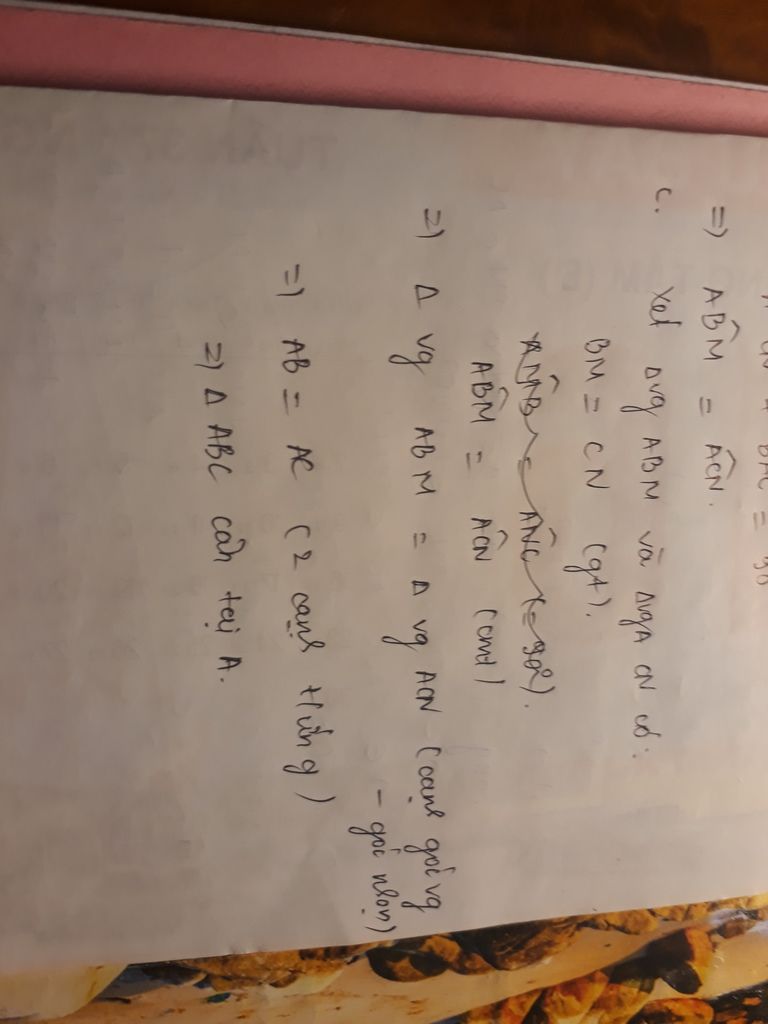 =) AB̂M = AĈN.
c. Xét Δvg ABM và ΔvgA CN có:
BM = CN (gt).
AM̂B = AN̂C (= 90°).
AB̂M = AĈN (cmt)
=) Δ vg ABM = Δ vg ACN (cạnh góc vg
- góc nhọn)
=) AB = AC (2 cạnh t/ứng)
=) Δ ABC cân tại A.